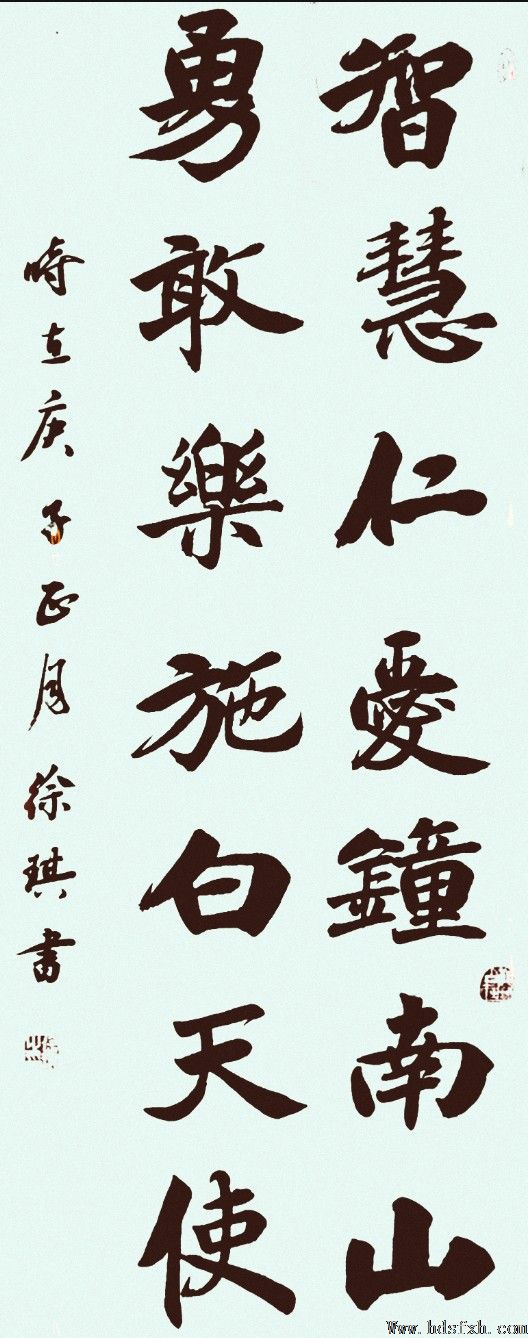 智慧仁愛鐘南山
勇敢樂施白天使
時在庚子正月徐琪書
Www.hdsfxh.com